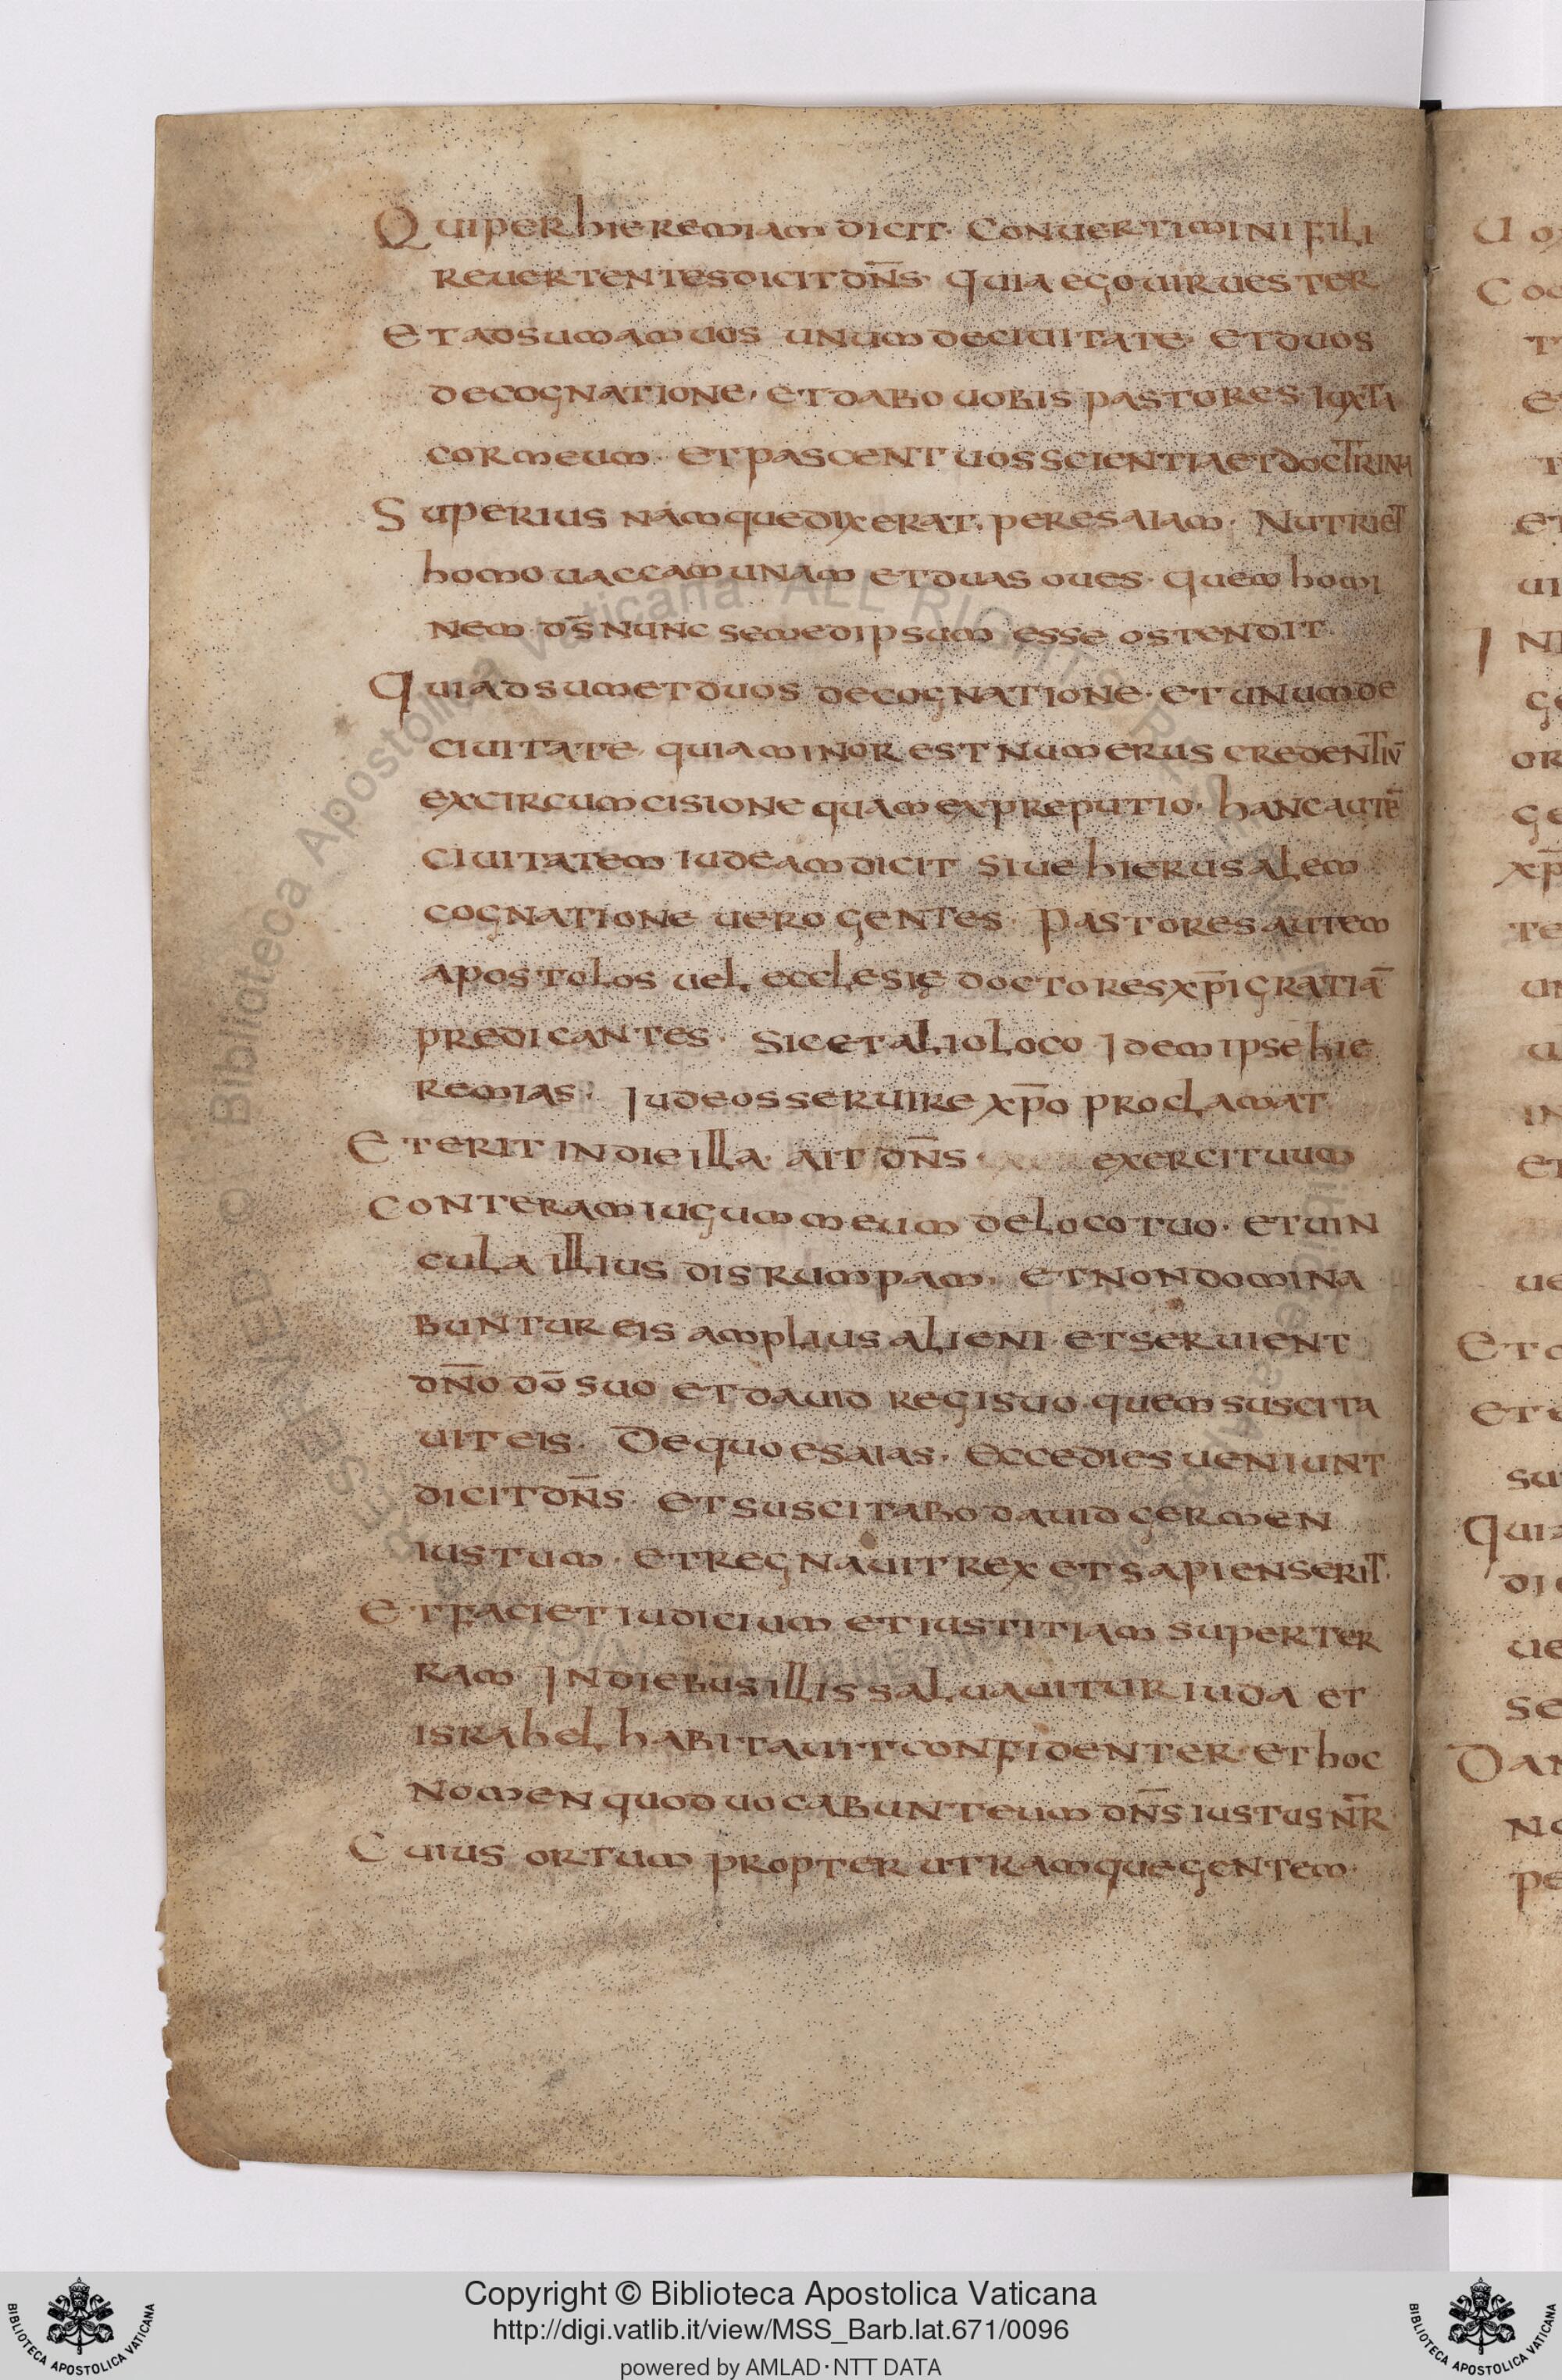 Qui per hieremiam dicit· Conuertimini fili
reuertentes dicit dn̄s· quia ego uir uester
Et adsumam uos unum de ciuitate· et duos
de cognatione· et dabo uobis pastores iuxta
cor meum· et pascent uos scientia et doctrina
Superius namque dixerat· per esaiam· Nutriet
homo uaccam unam et duas oues· quem homi
nem· ds̄ nunc semedipsum esse ostendit·
Qui adsumet duos de cognatione· et unum de
ciuitate· quia minor est numerus credentiū
ex circumcisione quam ex preputio· hanc autē
ciuitatem iudeam dicit siue hierusalem
cognatione uero gentes· Pastores autem
apostolos uel ecclesię doctores xp̄i gratiā
predicantes· Sic et alio loco Idem ipse hie
remias· Iudeos seruire xp̄o proclamat·
Et erit in die illa· ait dn̄s· exercituum
Conteram iugum meum de loco tuo· et uin
cula illius disrumpam· et non domina
buntur eis amplius alieni· et seruient
dn̄o dō suo et dauid regi suo· quem suscita
uit eis· De quo esaias· Ecce dies ueniunt
dicit dn̄s· et suscitabo dauid germen
iustum· et regnauit rex et sapiens erit·
Et faciet iudicium et iustitiam super ter
ram· In diebus illis saluauitur iuda et
israhel habitauit confidenter· et hoc
nomen quod uocabunt eum dn̄s iustus nr̄
Cuius ortum propter utramque gentem·
U
Coc
e
et
ui
IN
or
ge
xp̄
te
un
u
in
et
ue
Et
et
su
Qui
di
ue
se
Dan
no
pe
© Biblioteca Apostolica Vaticana ALL RIGHTS RESERVED
BIBLIOTECA APOSTOLICA VATICANA
Copyright © Biblioteca Apostolica Vaticana
http://digi.vatlib.it/view/MSS_Barb.lat.671/0096
powered by AMLAD·NTT DATA
BIBLIOTECA APOSTOLICA VATICANA